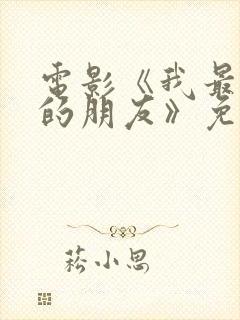 電影《我最
的朋友》免
菘小思